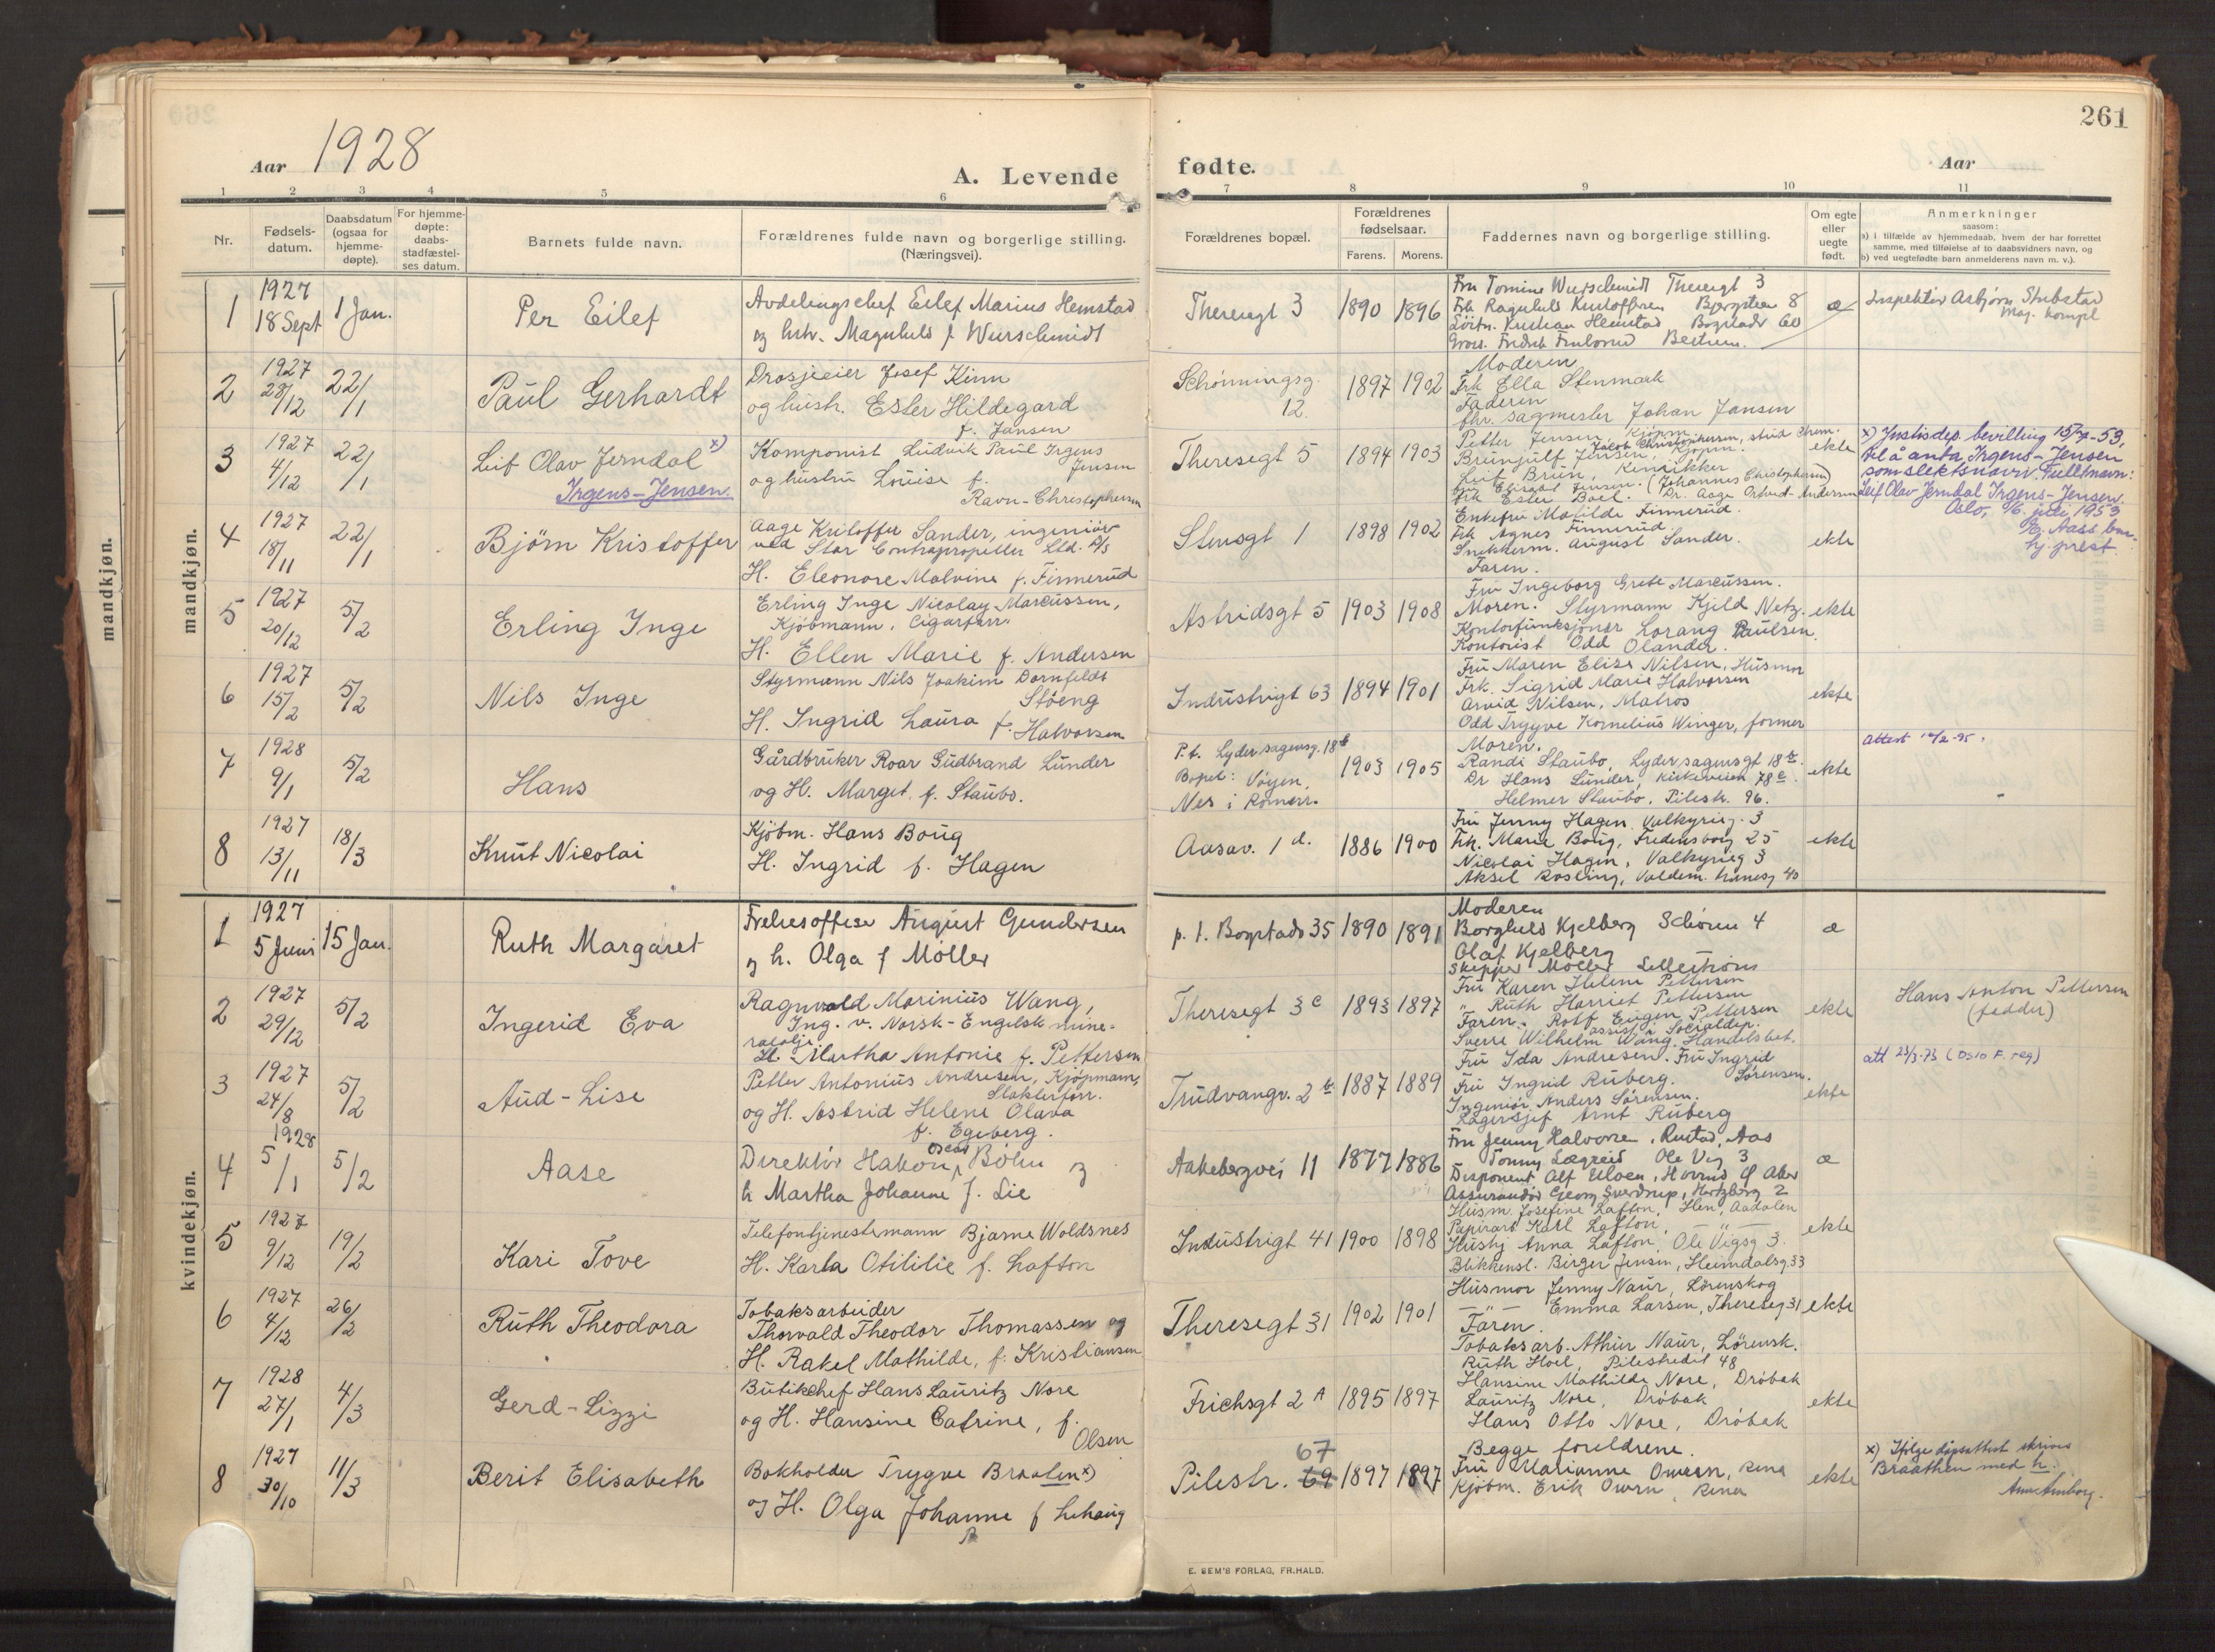 261
Aar 1928
A. Levende
fødte.
Aar
1 2 3 4 5 6 7 8 9 10 11
Nr.
Fødsels-
datum.
Daabsdatum
(ogsaa for
hjemme-
døpte).
For hjemme-
døpte:
daabs-
stadfæstel-
ses datum.
Barnets fulde navn.
Forældrenes fulde navn og borgerlige stilling.
(Næringsvei).
Forældrenes bopæl.
Forældrenes
fødselsaar.
Farens. Morens.
Faddernes navn og borgerlige stilling.
Om egte
eller
uegte
født.
Anmerkninger
saasom:
a) i tilfælde av hjemmedaab, hvem der har forrettet
samme, med tilføielse af to daabsvidners navn, og
b) ved uegtefødte barn anmelderens navn m. v.).
mandkjøn.
mandkjøn.
1
1927
18 Sept
1 Jan.
Per Eilef
Avdelingschef Eilef Marius Hemstad
og hstr. f Wurschmidt
Theresgt 3
1890 1896
Fru Tomine Wurschmidt Theresgt 3
Bestum.
æ
Inspektør Asbjørn Stubstad
2
1927
28/12
22/1
Paul Gerhardt
Drosjeeier Josef Kinn
og hustr. Ester Hildegard
f. Jansen
Schönningsg.
12.
1897 1902
Moderen
Frk Ella Stenmark
Faderen
fhr. sagmester Johan Jansen
3
1927
4/12
22/1
Leif Olav Jerndal x)
Irgens-Jensen.
Komponist Ludvik Paul Irgens
Jensen
og hustru Louise f.
Ravn-Christophersen
Theresegt 5
1894 1903
Petter Jensen Kjøpm.
Jacob Christophersen, stud. chem.
Brunjulf Jensen, Kjøpm.
Leif Brun,
Elisabet Jensen. (Johannes Christophersen)
Frk Ester Boel. Dr. Aage Ortved-Andersen
ekte
x) Justisdep. bevilling 15/7-53,
til å anta Irgens-Jensen
som slektsnavn. Fullt navn:
Leif Olav Jerndal Irgens-Jensen.
Oslo, juli 1953
hj. prest.
4
1927
18/11
22/1
Bjørn Kristoffer
Aage Kristoffer Sander, ingeniør
ved Star Contrapropeller Ltd. A/S
H. Eleonore Malvine f. Finnerud
Stensgt 1
1898 1902
Enkefru Matilde Finnerud.
Frk Agnes Finnerud.
Snekkerm. August Sander.
Faren.
ekte
5
1927
20/12
5/2
Erling Inge
Erling Inge Nicolay Marcussen,
Kjøbmann, Cigarforr.
H. Ellen Marie f. Andersen
Astridsgt 5
1903 1908
Fru Ingeborg Grete Marcussen.
Moren. Styrmann Kjeld Netz.
Kontorfunksjonær Lorang Paulsen.
Kontorist Odd Olander.
ekte
6
1927
15/2
5/2
Nils Inge
Styrmann Nils Joakim Dornfeldt
Støeng
H. Ingrid Laura f. Halvorsen
Industrigt 63
1894 1901
Fru Maren Elise Nilsen, Husmor
Frk. Sigrid Marie Halvorsen
Arvid Nilsen, Matros
Odd Trygve Kornelius Winger, former
ekte
7
1928
9/1
5/2
Hans
Gårdbruker Roar Gudbrand Lunder
og H. Marget. f. Staubo.
P.t. Lydersagensg. 18 b
Bopel: Vøyen,
Nes i Romer.
1903 1905
Moren.
Randi Staubo, Lydersagensgt 18 b.
Dr Hans Lunder, Kirkeveien 78 c.
Helmer Staubo. Pilestr. 96.
ekte
8
1927
13/11
18/3
Knut Nicolai
Kjøbm. Hans Boug
H. Ingrid f. Hagen
Aasav. 1 d.
1886 1900
Fru Jenny Hagen. Valkyrieg. 3
Frk. Marie Boug, Fredensborg 25
Nicolai Hagen, Valkyrieg 3
Aksel Rosling, Valdem. Thranesg 40
ekte
kvindekjøn.
1
1927
5 Juni
15 Jan.
Ruth Margaret
Frelsesoffiser August Gundersen
og h. Olga f Möller
p. t. Bogstadv 35
1890 1891
Moderen
Borghild Kjelberg Schøren 4
Olaf Kjelberg
Skipper Möller Lillestrøm
æ
2
1927
29/12
5/2
Ingerid Eva
Ragnvald Marinius Wang,
Ing. v. Norsk-Engelsk mine-
ralolje
H. Martha Antonie f. Pettersen
Theresegt 3 c
1893 1897
Fru Karen Helene Pettersen
" Ruth Harriet Pettersen
Faren. Rolf Eugen Pettersen
assist. i Socialdep.
Sverre Wilhelm Wang. Handelsbet.
ekte
Hans Anton Pettersen
(fadder)
3
1927
24/8
5/2
Aud-Lise
Petter Antonius Andresen, Kjøpmann,
Slakterforr.
og H. Astrid Helene Olava
f. Egeberg.
Trudvangv. 2 b
1887 1889
Fru Ida Andresen. Fru Ingrid
Sørensen.
Fru Ingrid Ruberg.
Ingeniør Anders Sørensen.
Lagersjef Arnt Ruberg
ekte
att 23/3-73 (Oslo F. reg)
4
1928
5/1
5/2
Aase
Direktør Hakon Oscar Böhn og
h Martha Johanne f. Lie
Aakebergvei 11
1877 1886
Fru Jenny Halvorsen, Rustad, Aas
Tonny Lægreid Ole Vig 3
Disponent Alf Uloen,
Assurandør Georg Sverdrup, Hertzberg 2
æ
5
1927
9/12
19/2
Kari Tove
Telefontjenestemann Bjarne Woldsnes
H. Karla Otililie f. Lafton
Industrigt 41
1900 1898
Husm. Josefine Lafton, Hen, Aadalen
Papirarb. Karl Lafton,
Hushj Anna Lafton, Ole Vigsg 3.
Blikkensl. Birger Jensen, Heimdalsg. 33
ekte
6
1927
4/12
26/2
Ruth Theodora
Tobaksarbeider
Thorvald Theodor Thomassen og
H. Rakel Mathilde, f. Kristiansen
Theresegt 31
1902 1901
Husmor Jenny Naur, Lørenskog
— " — Emma Larsen, Thereseg 31
Faren.
Tobaksarb. Athur Naur, Lørensk.
ekte
7
1928
27/1
4/3
Gerd-Lizzi
Butikchef Hans Lauritz Nore
og H. Hansine Catrine, f.
Olsen
Frichsgt 2 A
1895 1897
Ruth Hoel, Pilestredet 48
Hansine Mathilde Nore, Drøbak
Lauritz Nore, Drøbak
Hans Otto Nore, Drøbak
ekte
8
1927
30/10
11/3
Berit Elisabeth
Bokholder Trygve Braaten x)
og H. Olga Johanne f
67
Pilestr. 69
1897 1897
Begge foreldrene.
Fru Marianne Owren, Rena
Kjøbm. Erik Owren, Rena
ekte
x) Ifølge dåpsattest skrives
Braathen med h.
E. SEM'S FORLAG, FR.HALD.